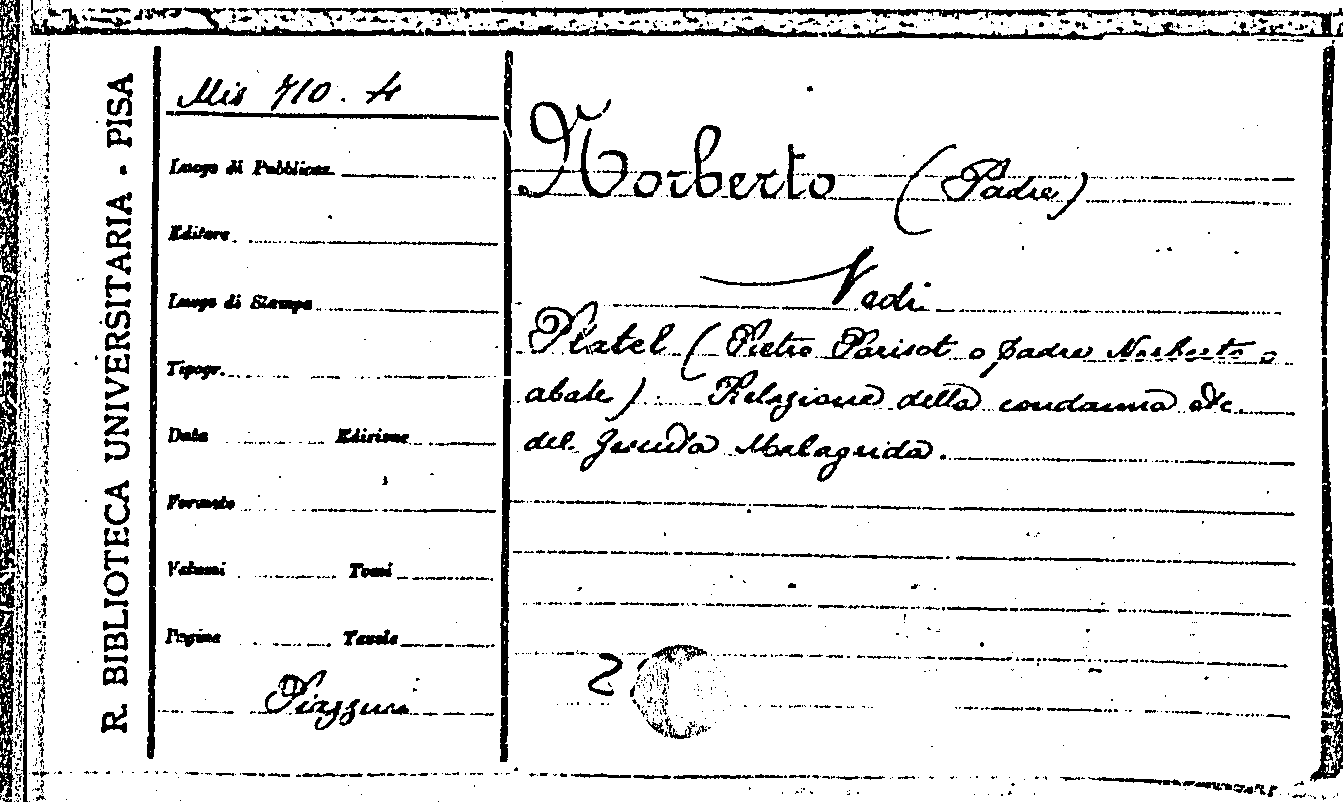 R. BIBLIOTECA UNIVERSITARIA - PISA
Mis 710. 4
Luogo di Pubblicaz.
Editore
Luogo di Stampa
Tipogr.
Data Edizione
Formato
Volumi Tomi
Pagine Tavole
Norberto (Padre)
Vedi
Platel (Pietro Parisot o padre Norberto o
abate) Relazione della condanna etc.
del Gesuita Malagrida.
2